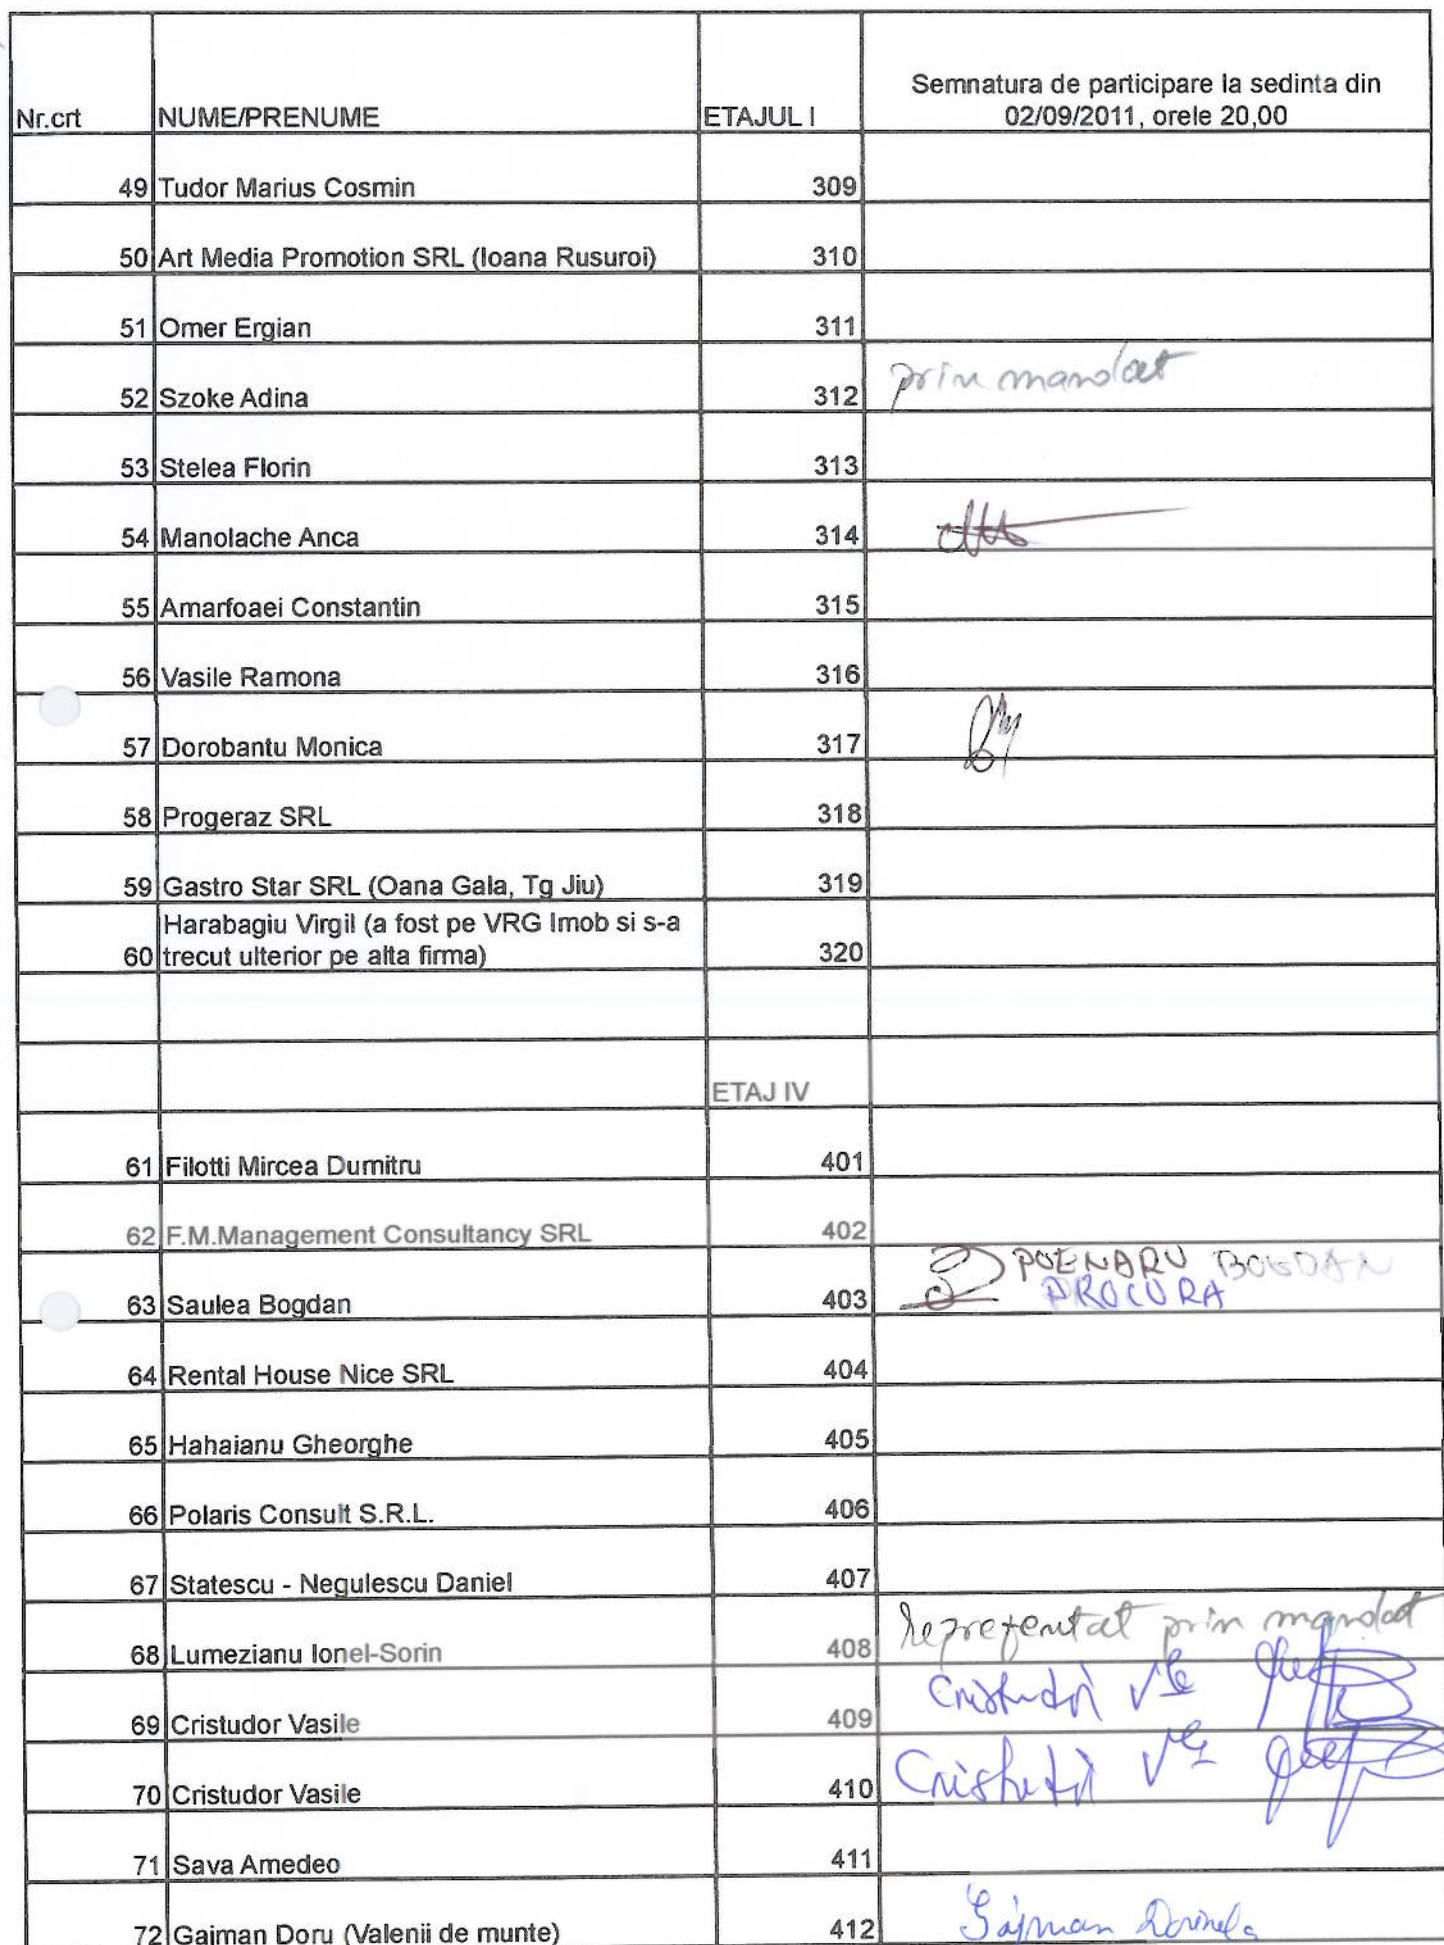 Nr.crt NUME/PRENUME ETAJUL I Semnatura de participare la sedinta din
02/09/2011, orele 20,00
49 Tudor Marius Cosmin 309
50 Art Media Promotion SRL (Ioana Rusuroi) 310
51 Omer Ergian 311
52 Szoke Adina 312 prin mandat
53 Stelea Florin 313
54 Manolache Anca 314
55 Amarfoaei Constantin 315
56 Vasile Ramona 316
57 Dorobantu Monica 317
58 Progeraz SRL 318
59 Gastro Star SRL (Oana Gala, Tg Jiu) 319
Harabagiu Virgil (a fost pe VRG Imob si s-a
60 trecut ulterior pe alta firma) 320
ETAJ IV
61 Filotti Mircea Dumitru 401
62 F.M.Management Consultancy SRL 402
POENARU BOGDAN
63 Saulea Bogdan 403 PROCURA
64 Rental House Nice SRL 404
65 Hahaianu Gheorghe 405
66 Polaris Consult S.R.L. 406
67 Statescu - Negulescu Daniel 407
68 Lumezianu Ionel-Sorin 408 Reprezentat prin mandat
69 Cristudor Vasile 409 Cristudor
70 Cristudor Vasile 410
71 Sava Amedeo 411
72 Gaiman Doru (Valenii de munte) 412 Gaiman Dorinela